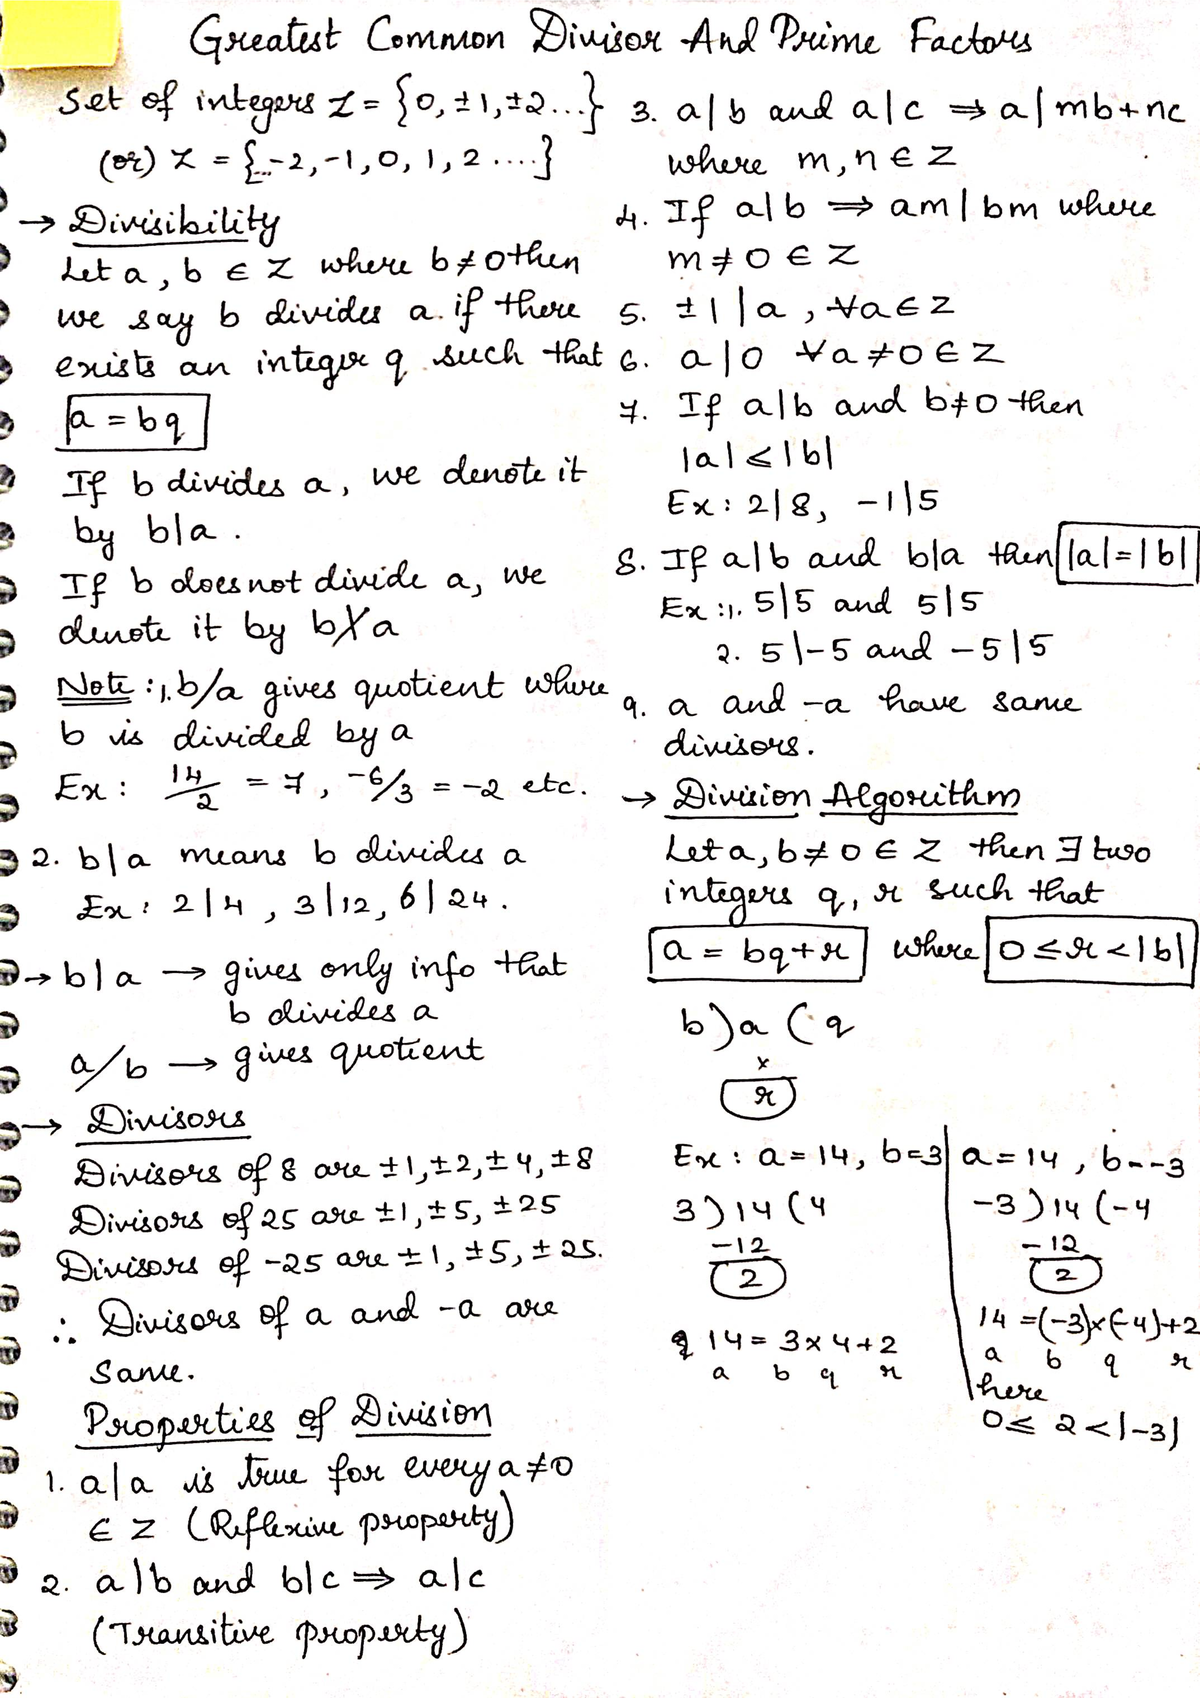 Greatest Common Divisor And Prime Factors
Set of integers Z = {0, ±1, ±2...}
(or) Z = {...-2, -1, 0, 1, 2 ....}
→ Divisibility
Let a, b ∈ Z where b≠0 then
we say b divides a. if there
exists an integer q such that
a = bq
If b divides a, we denote it
by b|a.
If b does not divide a, we
denote it by b∤a
Note : 1. b/a gives quotient where
b is divided by a
Ex : 14/2 = 7, -6/3 = -2 etc.
2. b|a means b divides a
Ex : 2|4, 3|12, 6|24.
→ b|a → gives only info that
b divides a
a/b → gives quotient
→ Divisors
Divisors of 8 are ±1, ±2, ±4, ±8
Divisors of 25 are ±1, ±5, ±25
Divisors of -25 are ±1, ±5, ±25.
∴ Divisors of a and -a are
same.
Properties of Division
1. a|a is true for every a≠0
∈ Z (Reflexive property)
2. a|b and b|c ⇒ a|c
(Transitive property)
3. a|b and a|c ⇒ a|mb+nc
where m, n ∈ Z
4. If a|b ⇒ am|bm where
m≠0 ∈ Z
5. ±1|a, ∀a∈Z
6. a|0 ∀a≠0∈Z
7. If a|b and b≠0 then
|a|≤|b|
Ex : 2|8, -1|5
8. If a|b and b|a then |a|=|b|
Ex : 1. 5|5 and 5|5
2. 5|-5 and -5|5
9. a and -a have same
divisors.
→ Division Algorithm
Let a, b≠0 ∈ Z then ∃ two
integers q, r such that
a = bq+r where 0≤r<|b|
b)a(q
x
r
Ex : a=14, b=3
3)14(4
-12
2
14 = 3×4+2
a b q r
a=14, b=-3
-3)14(-4
-12
2
14 =(-3)×(-4)+2
a b q r
here
0≤ 2<|-3|